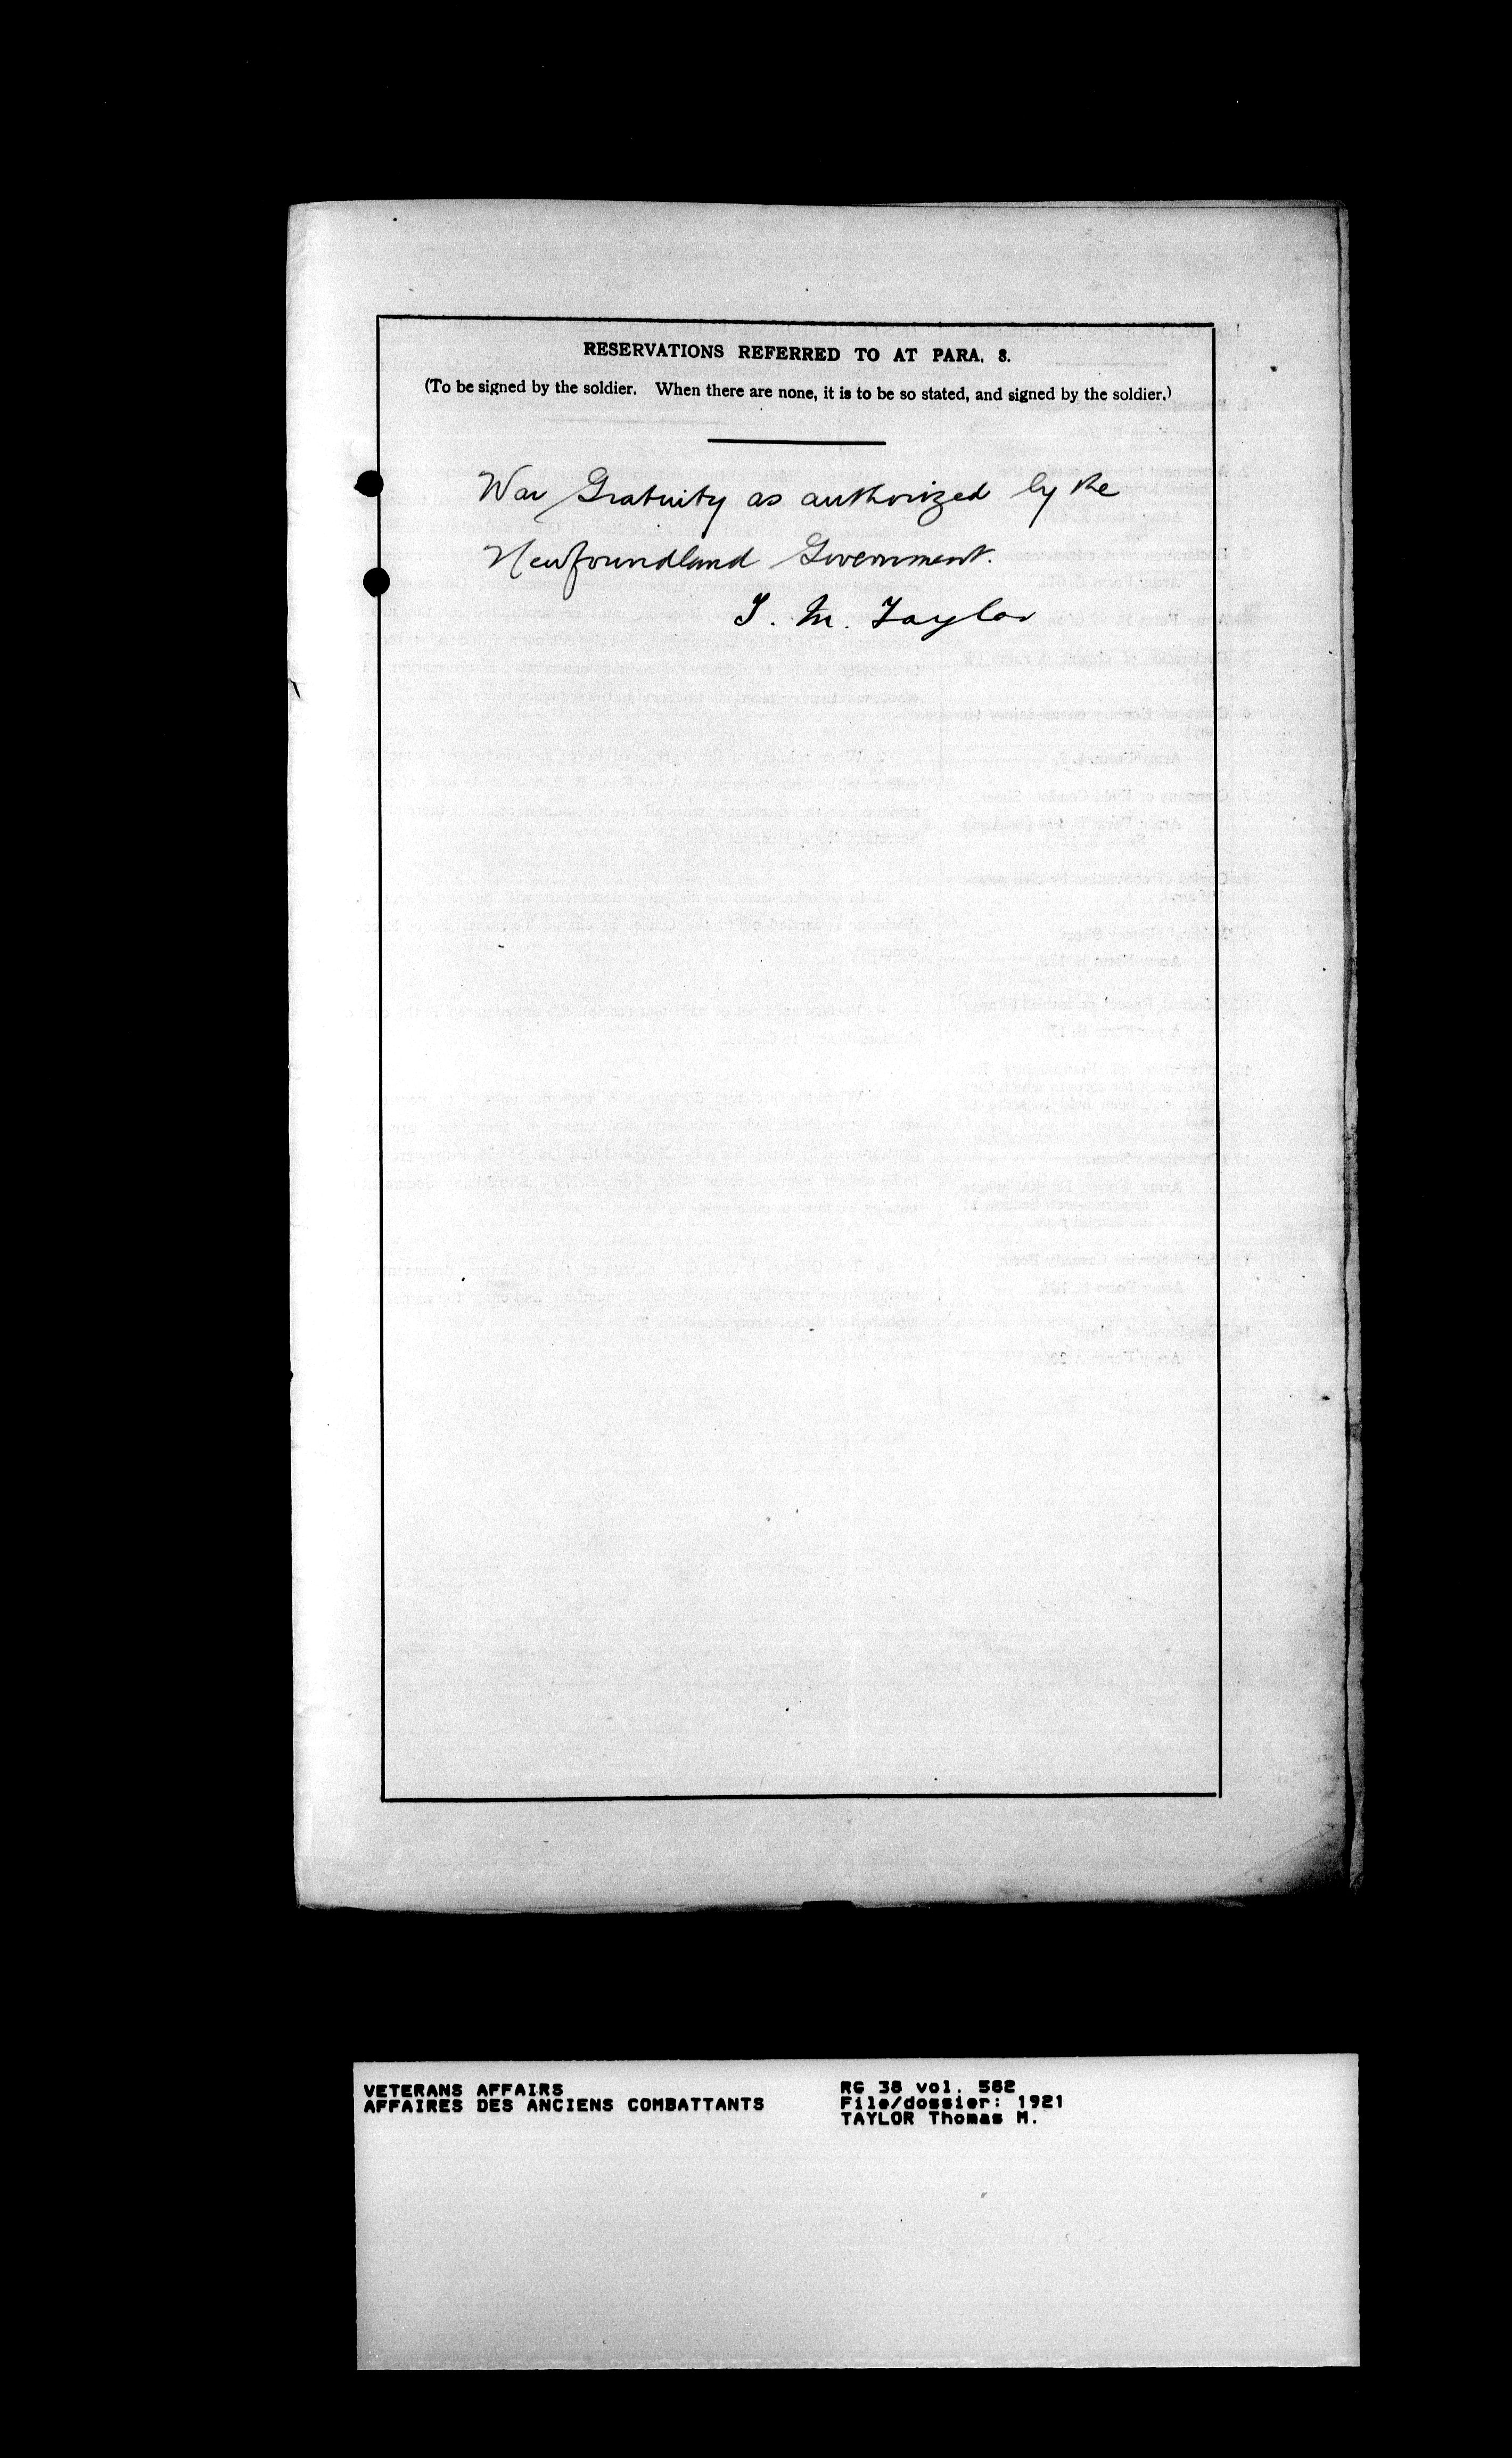 RESERVATIONS REFERRED TO AT PARA. 8.
(To be signed by the soldier. When there are none, it is to be so stated, and signed by the soldier.)
War Gratuity as authorized by the
Newfoundland Government.
T. M. Taylor
VETERANS AFFAIRS
AFFAIRES DES ANCIENS COMBATTANTS
RG 38 vol. 582
File/dossier: 1921
TAYLOR Thomas M.